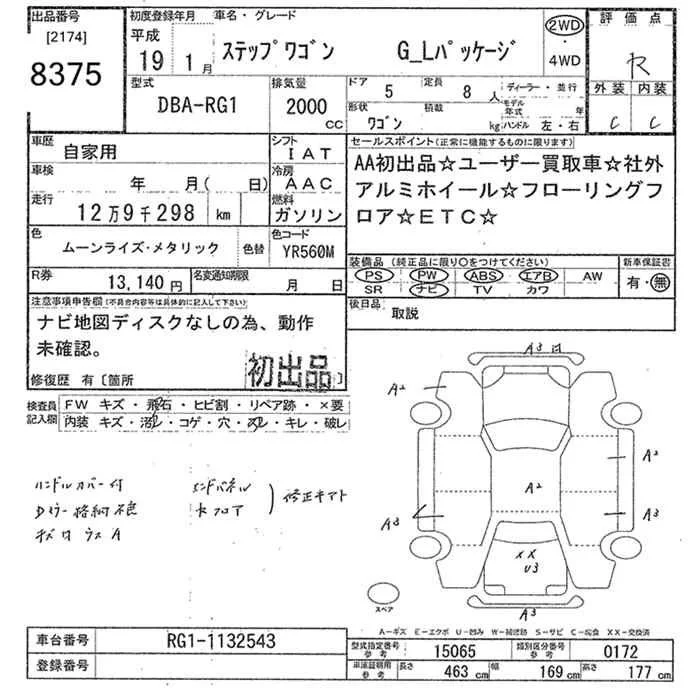 出品番号
[2174]
8375
初度登録年月
平成
19 1月
車名・グレード
ステップワゴン G_Lパッケージ
2WD
・
4WD
評価点
R
外装 内装
C C
型式
DBA-RG1
排気量
2000
CC
ドア 5
定員 8 人
形状 ワゴン
積載 kg
ディーラー・並行
モデル年式 年
ハンドル 左・右
車歴 自家用
シフト IAT
車検 年 月( 日)
冷房 AAC
走行 12万9千298 km
燃料 ガソリン
色 ムーンライズ・メタリック 色替
色コード YR560M
R券 13,140円
名変通知期限 月 日
セールスポイント(正常に機能するものに限ります)
AA初出品☆ユーザー買取車☆社外
アルミホイール☆フローリングフ
ロア☆ETC☆
装備品(純正品に限り○をつけてください)
PS PW ABS エアB AW
SR ナビ TV カワ
新車保証書
有・無
後日品 取説
注意事項申告欄(不具合内容等は具体的に記入して下さい)
ナビ地図ディスクなしの為、動作
未確認。
初出品
修復歴 有〔箇所 〕
検査員記入欄
FW キズ・飛石・ヒビ割・リペア跡・×要
内装 キズ・汚レ・コゲ・穴・スレ・キレ・破レ
ハンドルカバー付
Dミラー格納不良
キズ ウス A
エンドパネル
フロア
修正キアト
A3
A2
A2
A2
A3
A3
XX
U3
A3
スペア
A-キズ E-エクボ U-凹み W-補修跡 S-サビ C-腐食 XX-交換済
車台番号 RG1-1132543
登録番号
型式指定番号 参考 15065
類別区分番号 参考 0172
車庫証明用 参考
長さ 463 cm
幅 169 cm
高さ 177 cm